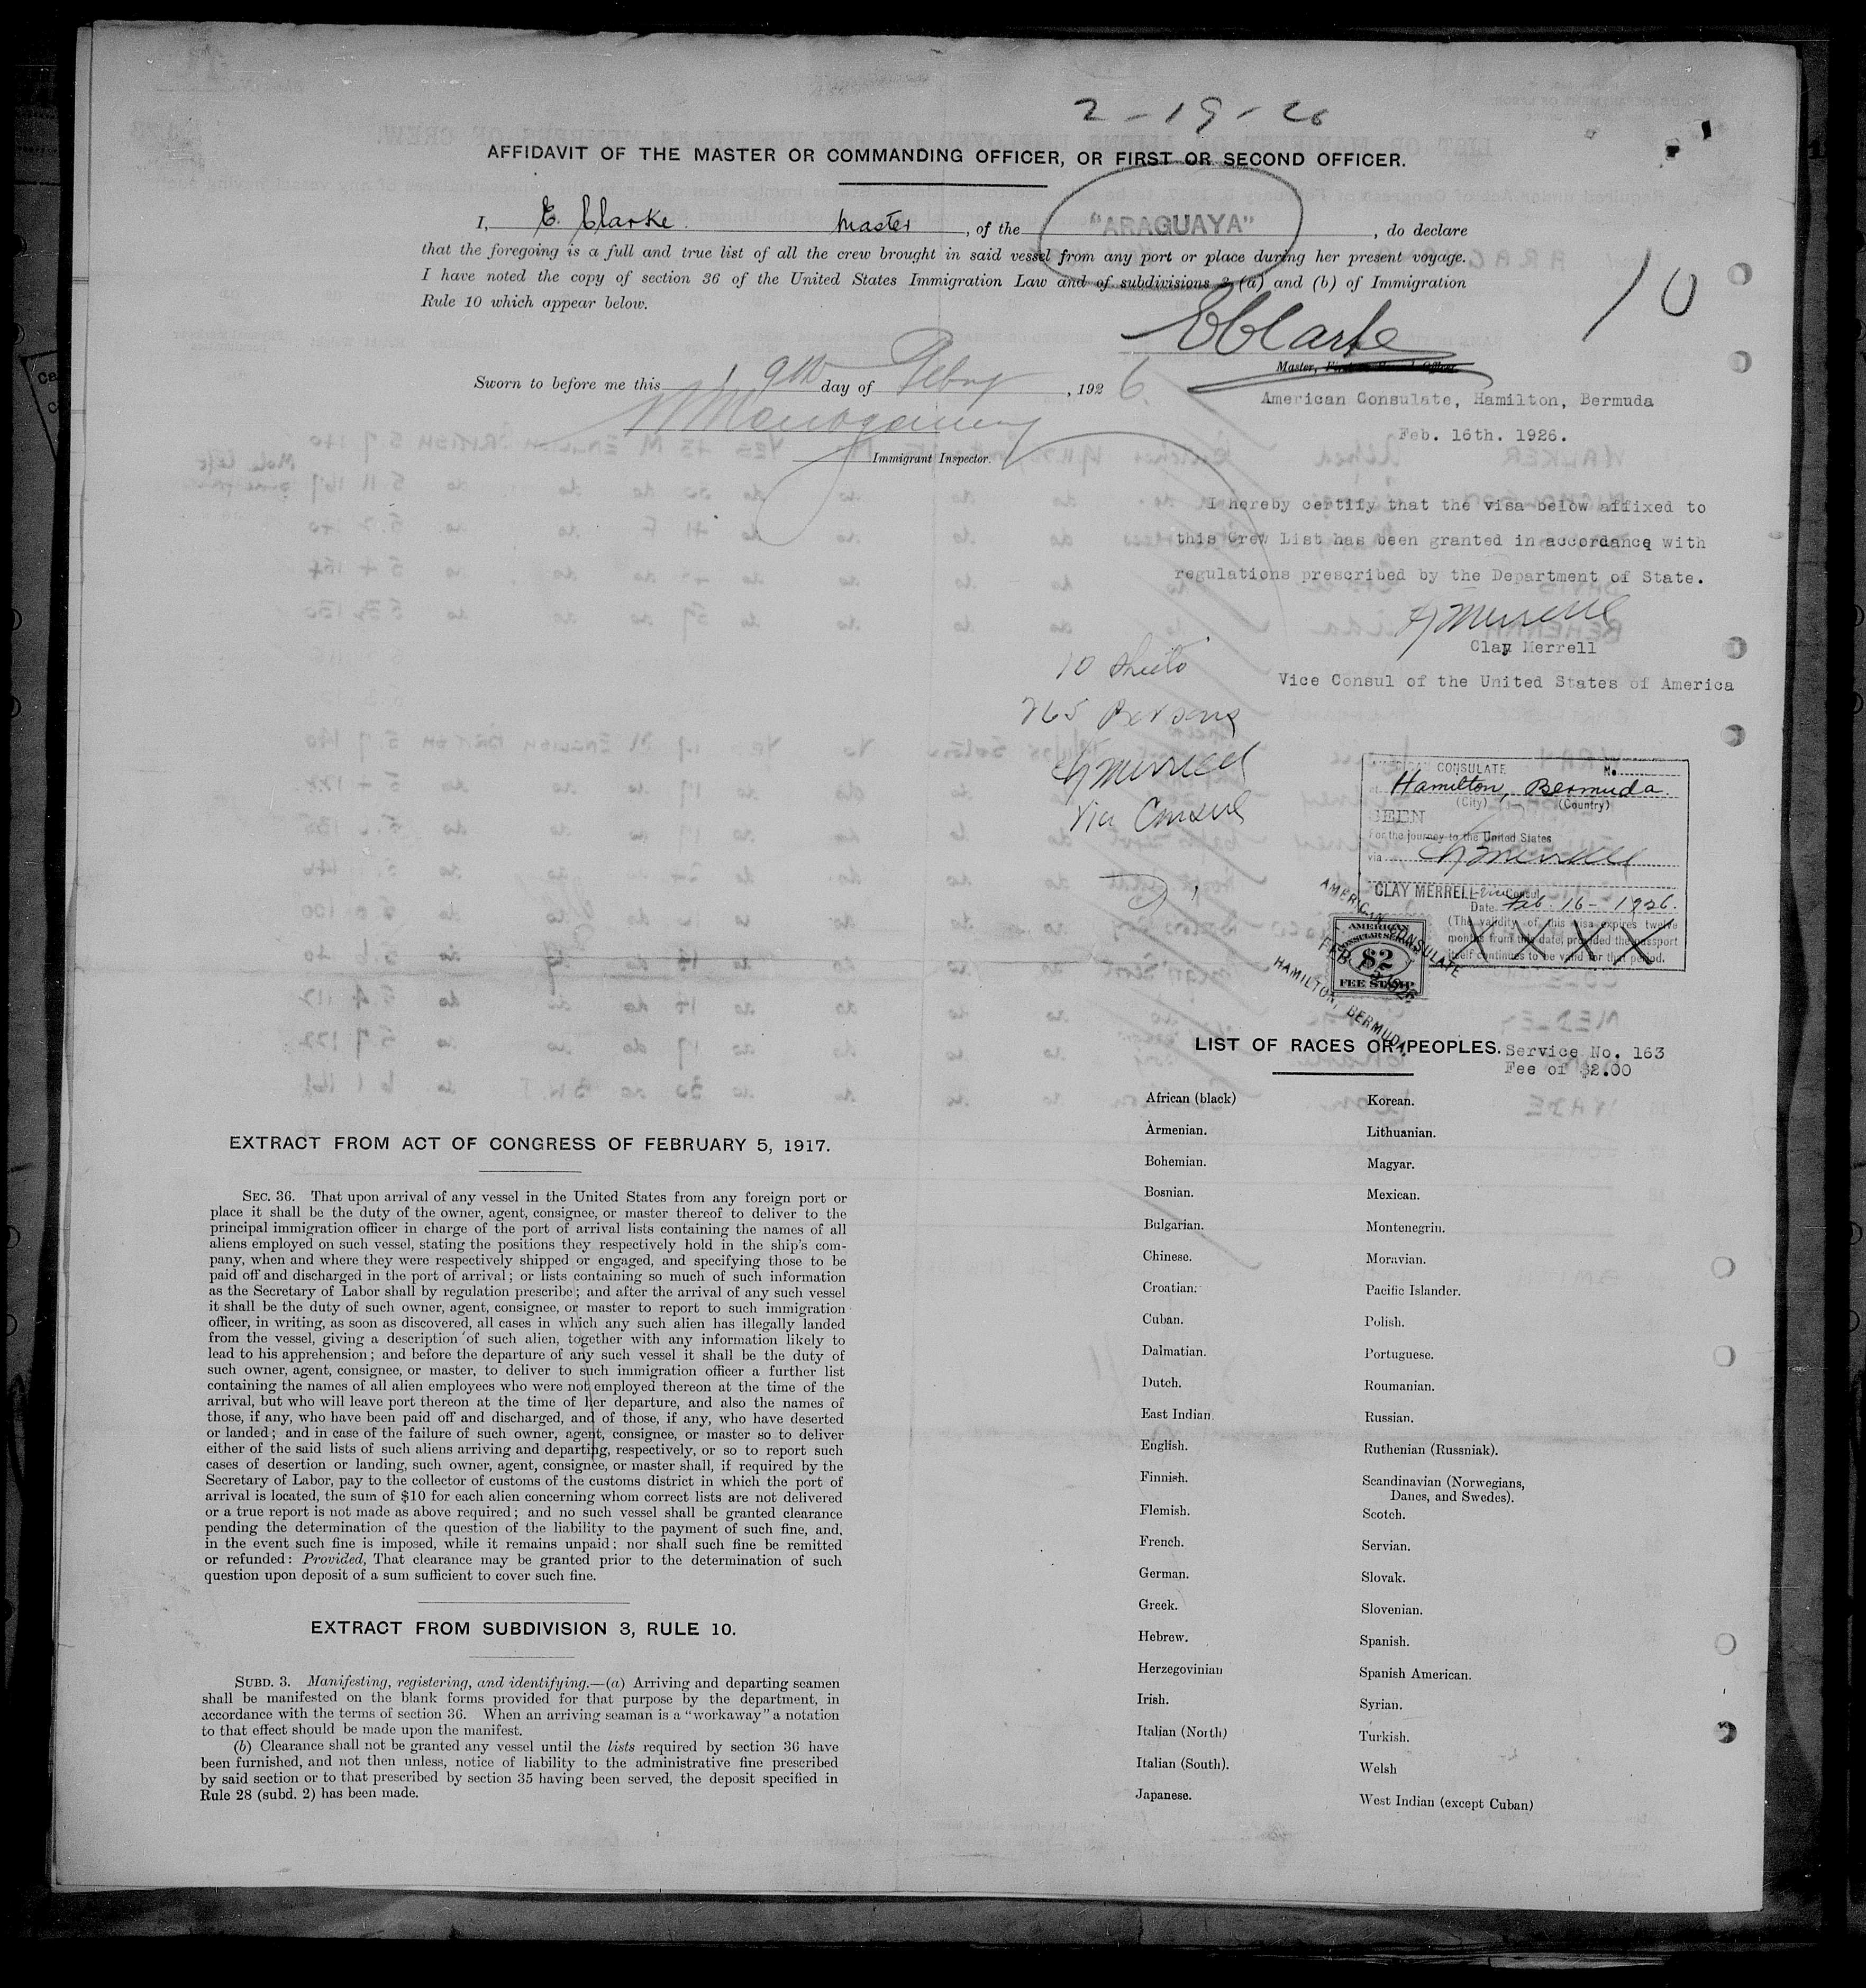 2-19-26
AFFIDAVIT OF THE MASTER OR COMMANDING OFFICER, OR FIRST OR SECOND OFFICER.
I, E. Clarke. Master, of the "ARAGUAYA", do declare
that the foregoing is a full and true list of all the crew brought in said vessel from any port or place during her present voyage.
I have noted the copy of section 36 of the United States Immigration Law and of subdivisions 3 (a) and (b) of Immigration
Rule 10 which appear below.
10
EClarke
Master, First or Second Officer.
Sworn to before me this 19th day of Febry, 1926.
Immigrant Inspector.
American Consulate, Hamilton, Bermuda
Feb. 16th. 1926.
I hereby certify that the visa below affixed to
this Crew List has been granted in accordance with
regulations prescribed by the Department of State.
Clay Merrell
Vice Consul of the United States of America
10 Sheets
265 Persons
CMerrell
Vice Consul
AMERICAN CONSULATE No.
at Hamilton, Bermuda.
(City) (Country)
SEEN
For the journey to the United States
via CMerrell
CLAY MERRELL Vice Consul
Date Feb. 16- 1926.
(The validity of this visa expires twelve
months from this date, provided the passport
itself continues to be valid for that period.
X X X X
AMERICAN CONSULATE
HAMILTON, BERMUDA
AMERICAN
CONSULAR SERVICE
$2
FEE STAMP
LIST OF RACES OR PEOPLES.
Service No. 163
Fee of $2.00
African (black)
Armenian.
Bohemian.
Bosnian.
Bulgarian.
Chinese.
Croatian.
Cuban.
Dalmatian.
Dutch.
East Indian.
English.
Finnish.
Flemish.
French.
German.
Greek.
Hebrew.
Herzegovinian
Irish.
Italian (North)
Italian (South).
Japanese.
Korean.
Lithuanian.
Magyar.
Mexican.
Montenegrin.
Moravian.
Pacific Islander.
Polish.
Portuguese.
Roumanian.
Russian.
Ruthenian (Russniak).
Scandinavian (Norwegians,
Danes, and Swedes).
Scotch.
Servian.
Slovak.
Slovenian.
Spanish.
Spanish American.
Syrian.
Turkish.
Welsh
West Indian (except Cuban)
EXTRACT FROM ACT OF CONGRESS OF FEBRUARY 5, 1917.
SEC. 36. That upon arrival of any vessel in the United States from any foreign port or
place it shall be the duty of the owner, agent, consignee, or master thereof to deliver to the
principal immigration officer in charge of the port of arrival lists containing the names of all
aliens employed on such vessel, stating the positions they respectively hold in the ship's com-
pany, when and where they were respectively shipped or engaged, and specifying those to be
paid off and discharged in the port of arrival; or lists containing so much of such information
as the Secretary of Labor shall by regulation prescribe; and after the arrival of any such vessel
it shall be the duty of such owner, agent, consignee, or master to report to such immigration
officer, in writing, as soon as discovered, all cases in which any such alien has illegally landed
from the vessel, giving a description of such alien, together with any information likely to
lead to his apprehension; and before the departure of any such vessel it shall be the duty of
such owner, agent, consignee, or master, to deliver to such immigration officer a further list
containing the names of all alien employees who were not employed thereon at the time of the
arrival, but who will leave port thereon at the time of her departure, and also the names of
those, if any, who have been paid off and discharged, and of those, if any, who have deserted
or landed; and in case of the failure of such owner, agent, consignee, or master so to deliver
either of the said lists of such aliens arriving and departing, respectively, or so to report such
cases of desertion or landing, such owner, agent, consignee, or master shall, if required by the
Secretary of Labor, pay to the collector of customs of the customs district in which the port of
arrival is located, the sum of $10 for each alien concerning whom correct lists are not delivered
or a true report is not made as above required; and no such vessel shall be granted clearance
pending the determination of the question of the liability to the payment of such fine, and,
in the event such fine is imposed, while it remains unpaid; nor shall such fine be remitted
or refunded: Provided, That clearance may be granted prior to the determination of such
question upon deposit of a sum sufficient to cover such fine.
EXTRACT FROM SUBDIVISION 3, RULE 10.
SUBD. 3. Manifesting, registering, and identifying.—(a) Arriving and departing seamen
shall be manifested on the blank forms provided for that purpose by the department, in
accordance with the terms of section 36. When an arriving seaman is a "workaway" a notation
to that effect should be made upon the manifest.
(b) Clearance shall not be granted any vessel until the lists required by section 36 have
been furnished, and not then unless, notice of liability to the administrative fine prescribed
by said section or to that prescribed by section 35 having been served, the deposit specified in
Rule 28 (subd. 2) has been made.